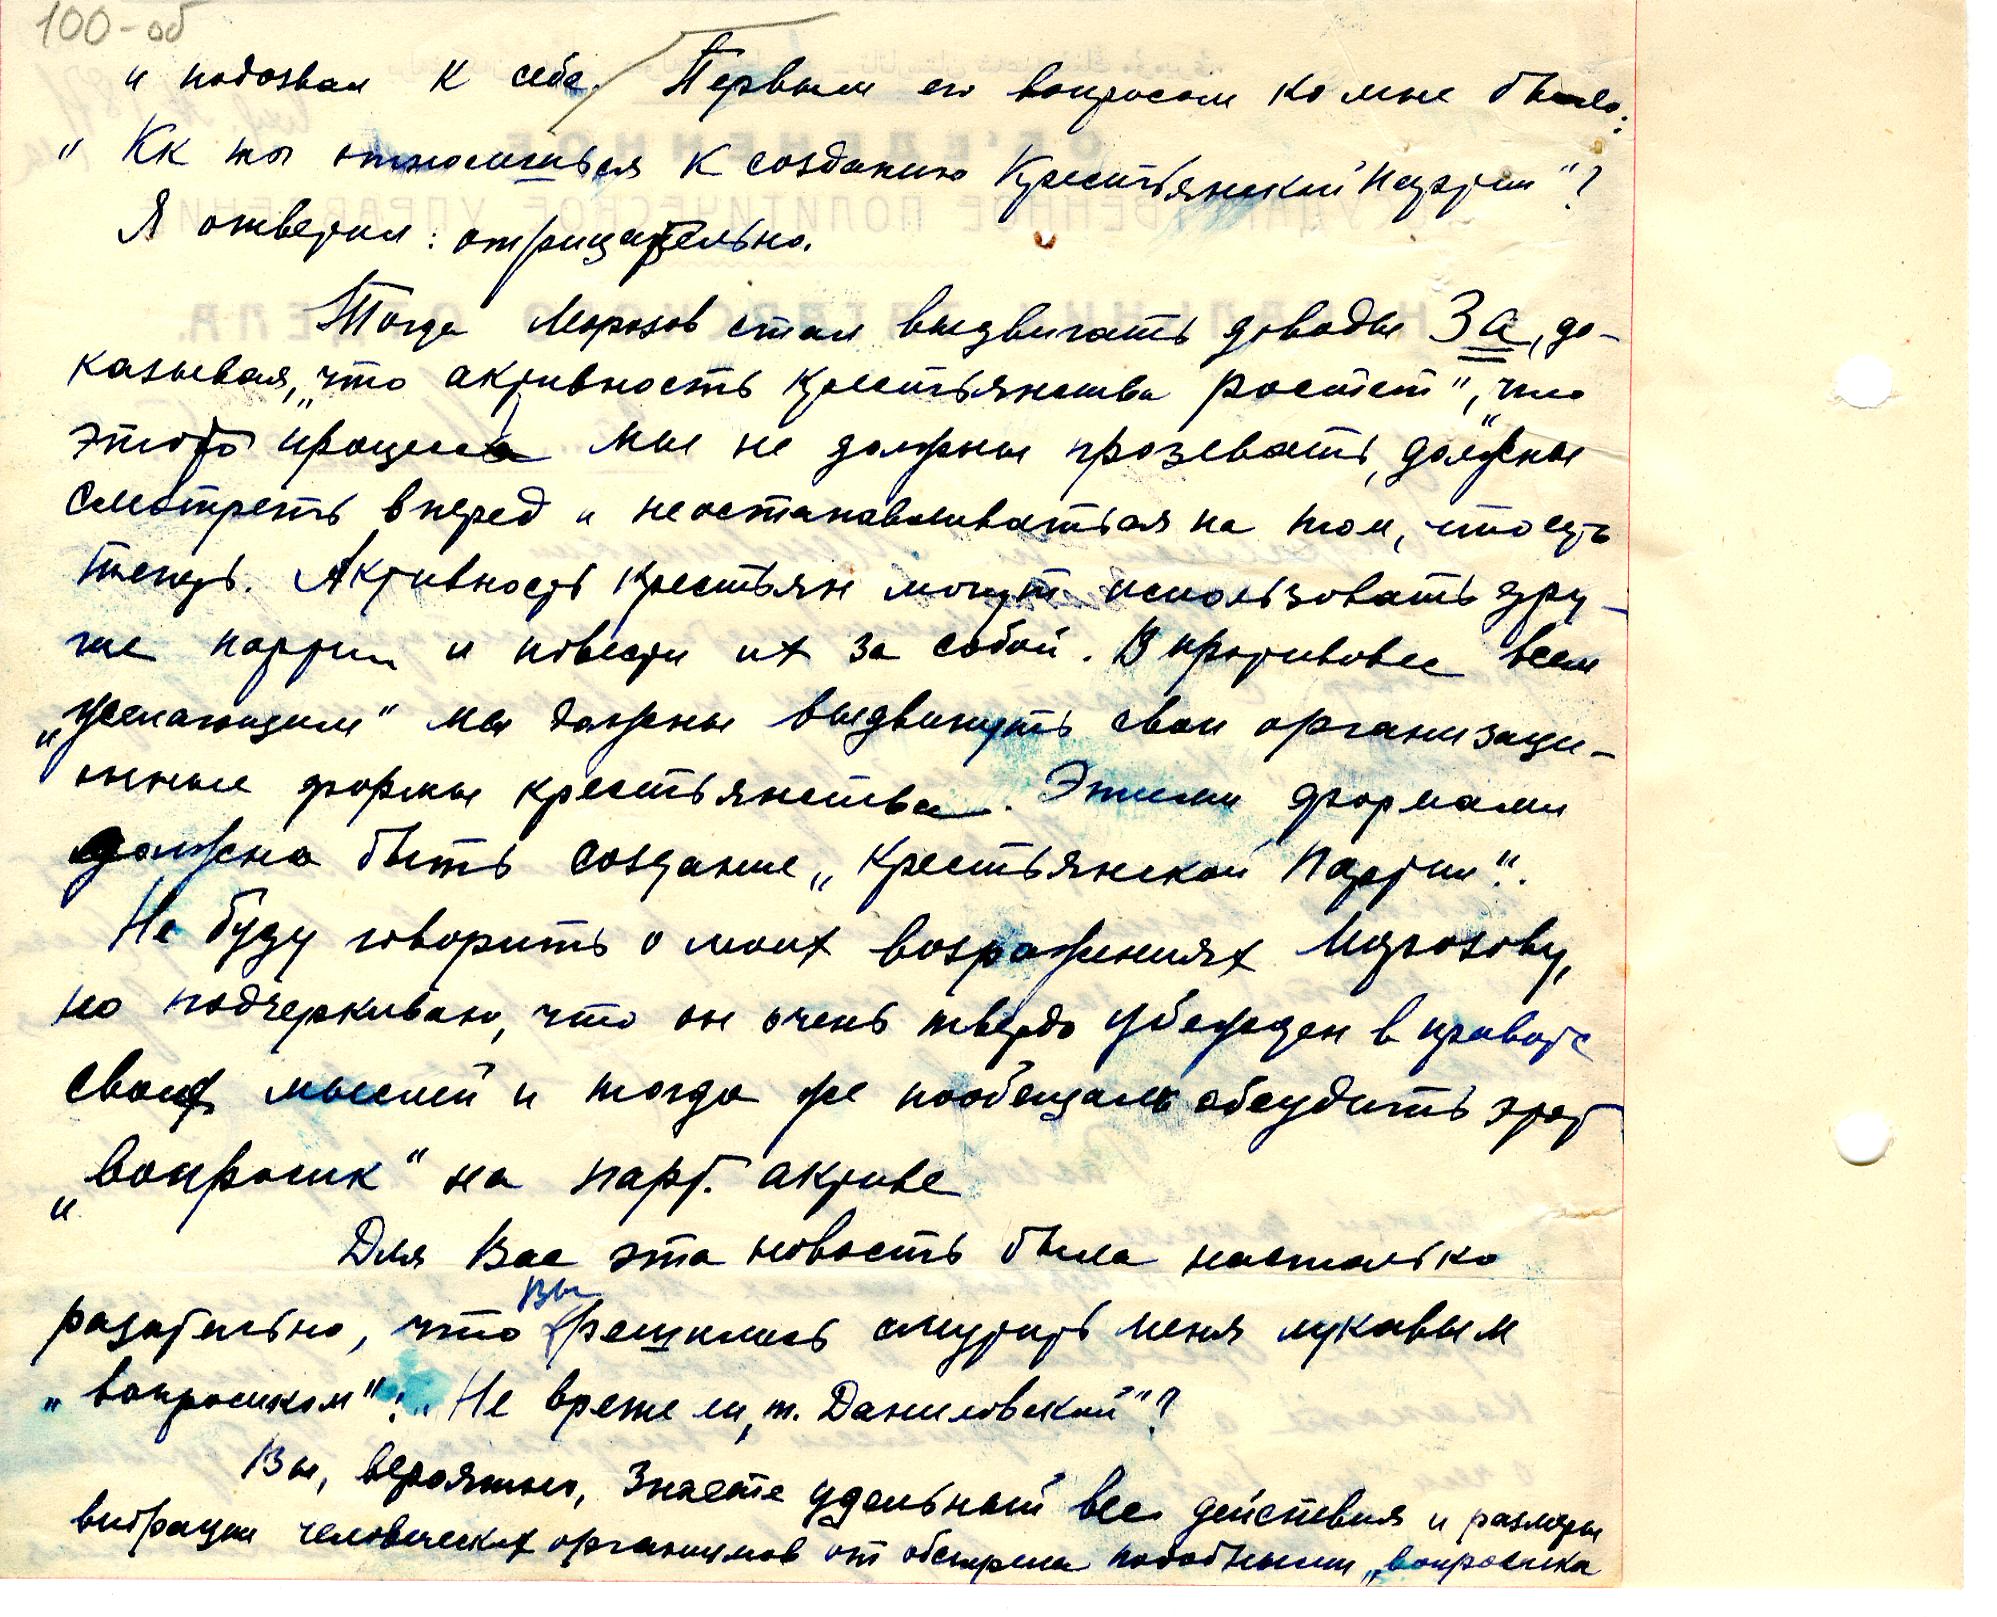 100-об
и подозвал к себе. Первым его вопросом ко мне было:
"Кк ты относишься к созданию Крестьянской Партии"?
Я ответил: отрицательно.
Тогда Морозов стал выдвигать доводы За, до-
казывая, "что активность крестьянства ростет", что
этого процесса мы не должны прозевать, должны
смотреть вперед и неостанавливаться на том, что есть
теперь. Активность крестьян могут использовать дру-
гие партии и повести их за собой. В противовес всем
"желающим" мы должны выдвинуть свои организаци-
онные формы крестьянства. Этими формами
должно быть создание "Крестьянской Партии".
Не буду говорить о моих возражениях Морозову,
но подчеркиваю, что он очень твердо убежден в правоте
своих мыслей и тогда же пообещал обсудить этот
"вопросик" на парт. активе
Для Вас эта новость была настолько
разительно, что Вы решились смутить меня лукавым
"вопросиком": "Не врете ли, т. Даниловский"?
Вы, вероятно, знаете удельный вес действия и размеры
вибрации человеческих организмов от обстрела подобными "вопросика